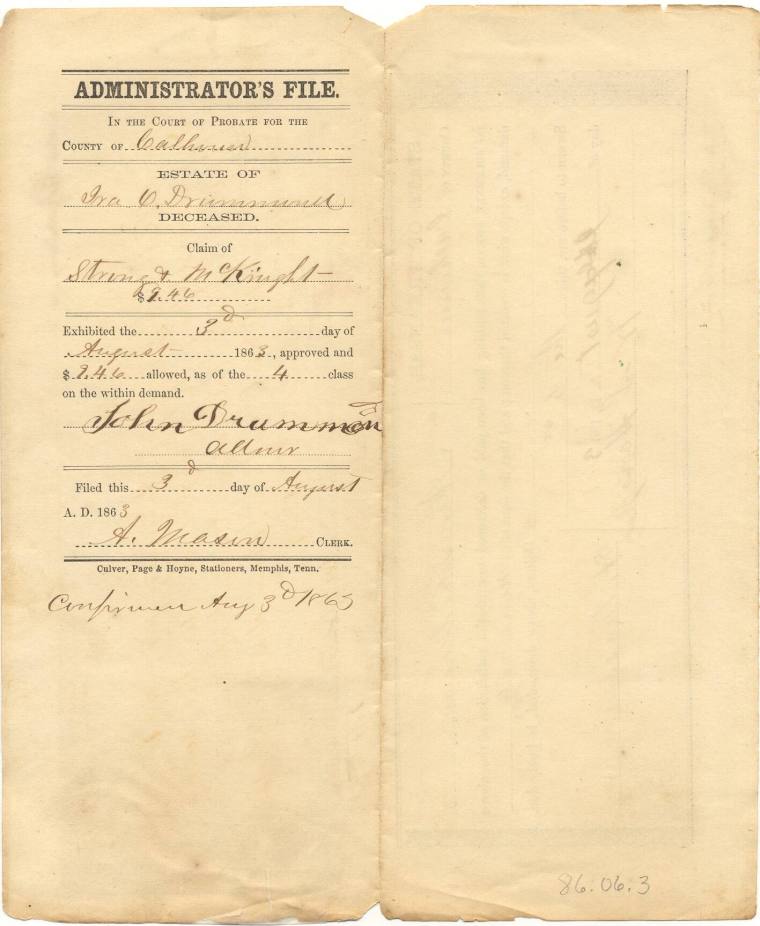 ADMINISTRATOR'S FILE.
IN THE COURT OF PROBATE FOR THE
COUNTY OF Calhoun
ESTATE OF
Ira C. Drummond
DECEASED.
Claim of
Strong & McKnight
$9.46
Exhibited the 3d day of
August 1863, approved and
$9.46 allowed, as of the 4 class
on the within demand.
John Drummon
Admr
Filed this 3d day of August
A. D. 1863
A. Mason CLERK.
Culver, Page & Hoyne, Stationers, Memphis, Tenn.
Aug 3d 1863
86.06.3